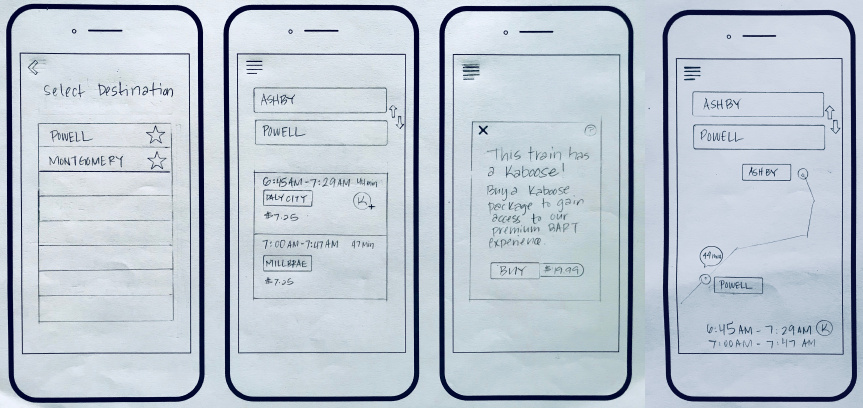 Select Destination
POWELL
MONTGOMERY
ASHBY
POWELL
6:45AM-7:29AM 44min
DALY CITY
K+
$7.25
7:00AM-7:47AM 47Min
MILLBRAE
$7.25
X ?
This train has
a Kaboose!
Buy a Kaboose
package to gain
access to our
premium BART
experience.
BUY $19.99
ASHBY
POWELL
ASHBY
44min
POWELL
6:45AM-7:29AM K
7:00AM-7:47 AM